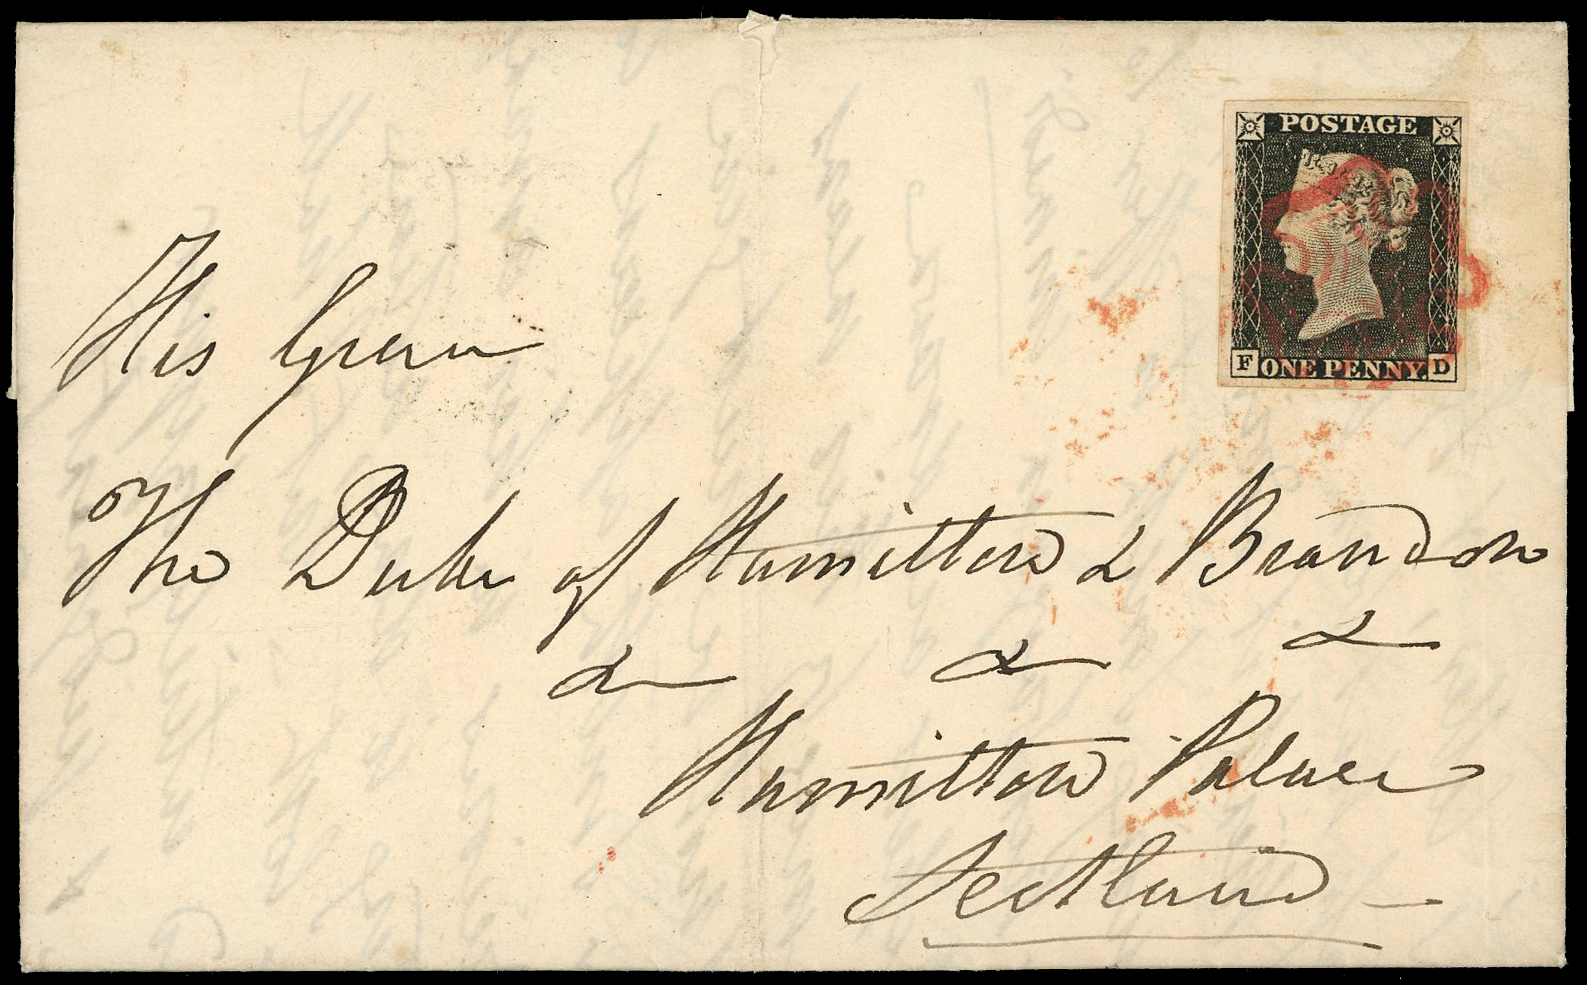 POSTAGE
F ONE PENNY. D
His Grace
The Duke of Hamilton & Brandon
& & &
Hamilton Palace
Scotland